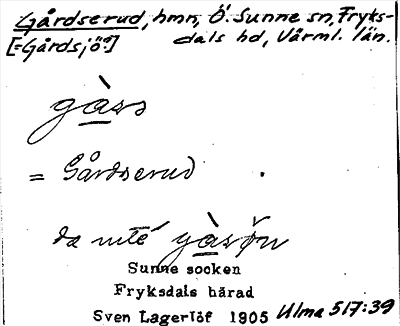 Gårdserud, hmn, Ö. Sunne sn, Fryks-
[=Gårdsjö?] dals hd, Värml. län.
gàss
= Gårdserud
da nté gàsǫ̌n
Sunne socken
Fryksdals härad
Sven Lagerlöf 1905 Ulma 517:39